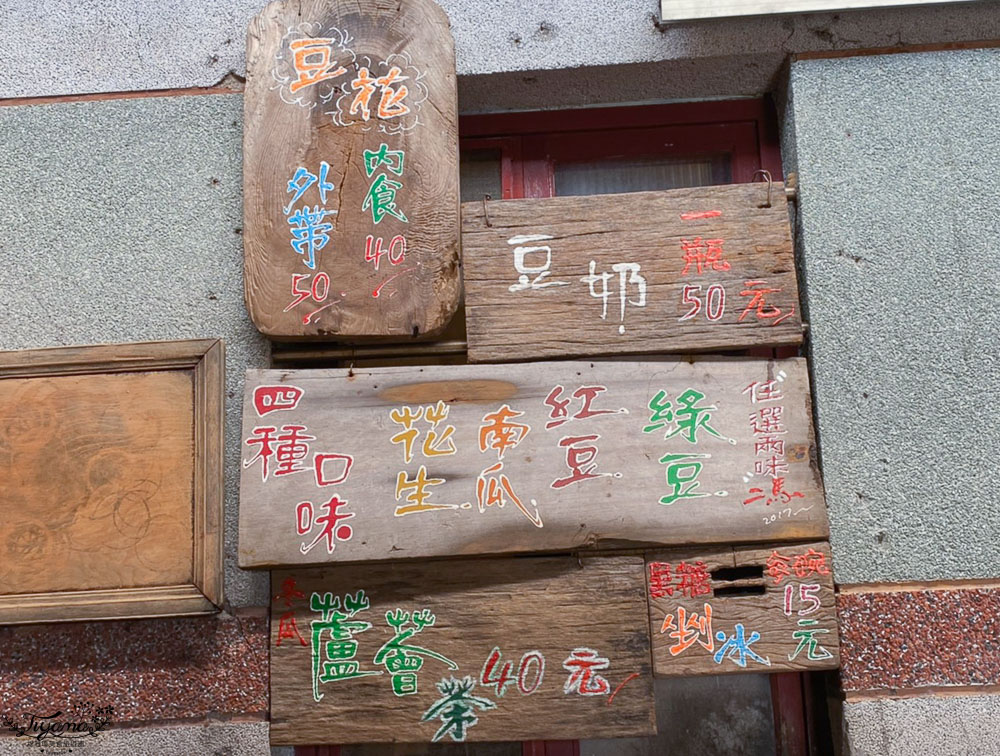 豆花
內食
40
外帶
50
豆奶
一瓶
50元
四種
口味
花生
南瓜
紅豆
綠豆
任選兩味
2017
冬瓜
蘆薈茶 40元
黑糖
剉冰
碗
15
元